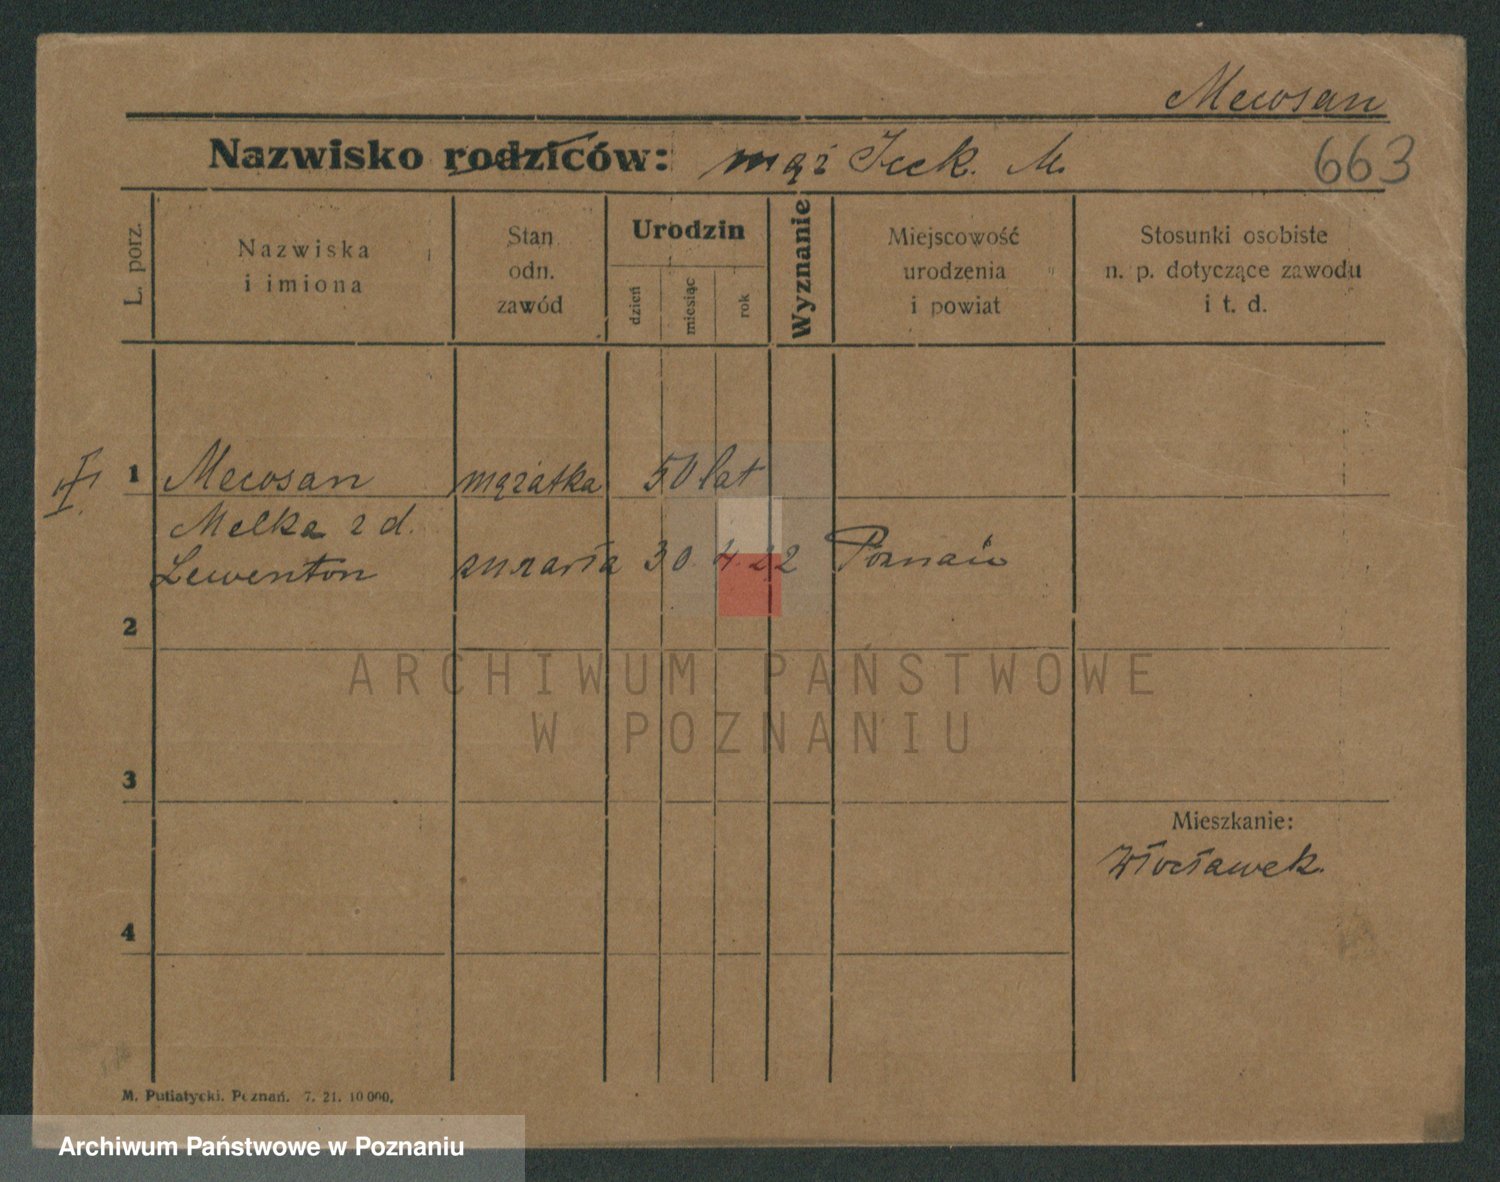 Mecosan
Nazwisko rodziców: mąż Icek. M.
663
L. porz.
Nazwiska
i imiona
Stan
odn.
zawód
Urodzin
dzień
miesiąc
rok
Wyznanie
Miejscowość
urodzenia
i powiat
Stosunki osobiste
n. p. dotyczące zawodu
i t. d.
1 Mecosan mężatka 50 lat
Melka z d.
Lewenton zmarła 30. 4. 22 Poznań
2
3
Mieszkanie:
Włocławek.
4
M. Putiatycki. Poznań. 7. 21. 10 000.
ARCHIWUM PAŃSTWOWE
W POZNANIU
Archiwum Państwowe w Poznaniu